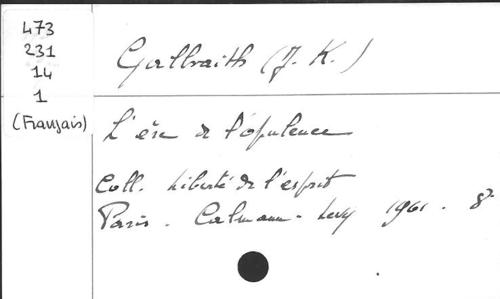 473
231
14
1
(Français)
Galbraith (J. K.)
L'ère de l'opulence
Coll. Liberté de l'esprit
Paris. Calmann-Levy 1961. 8°